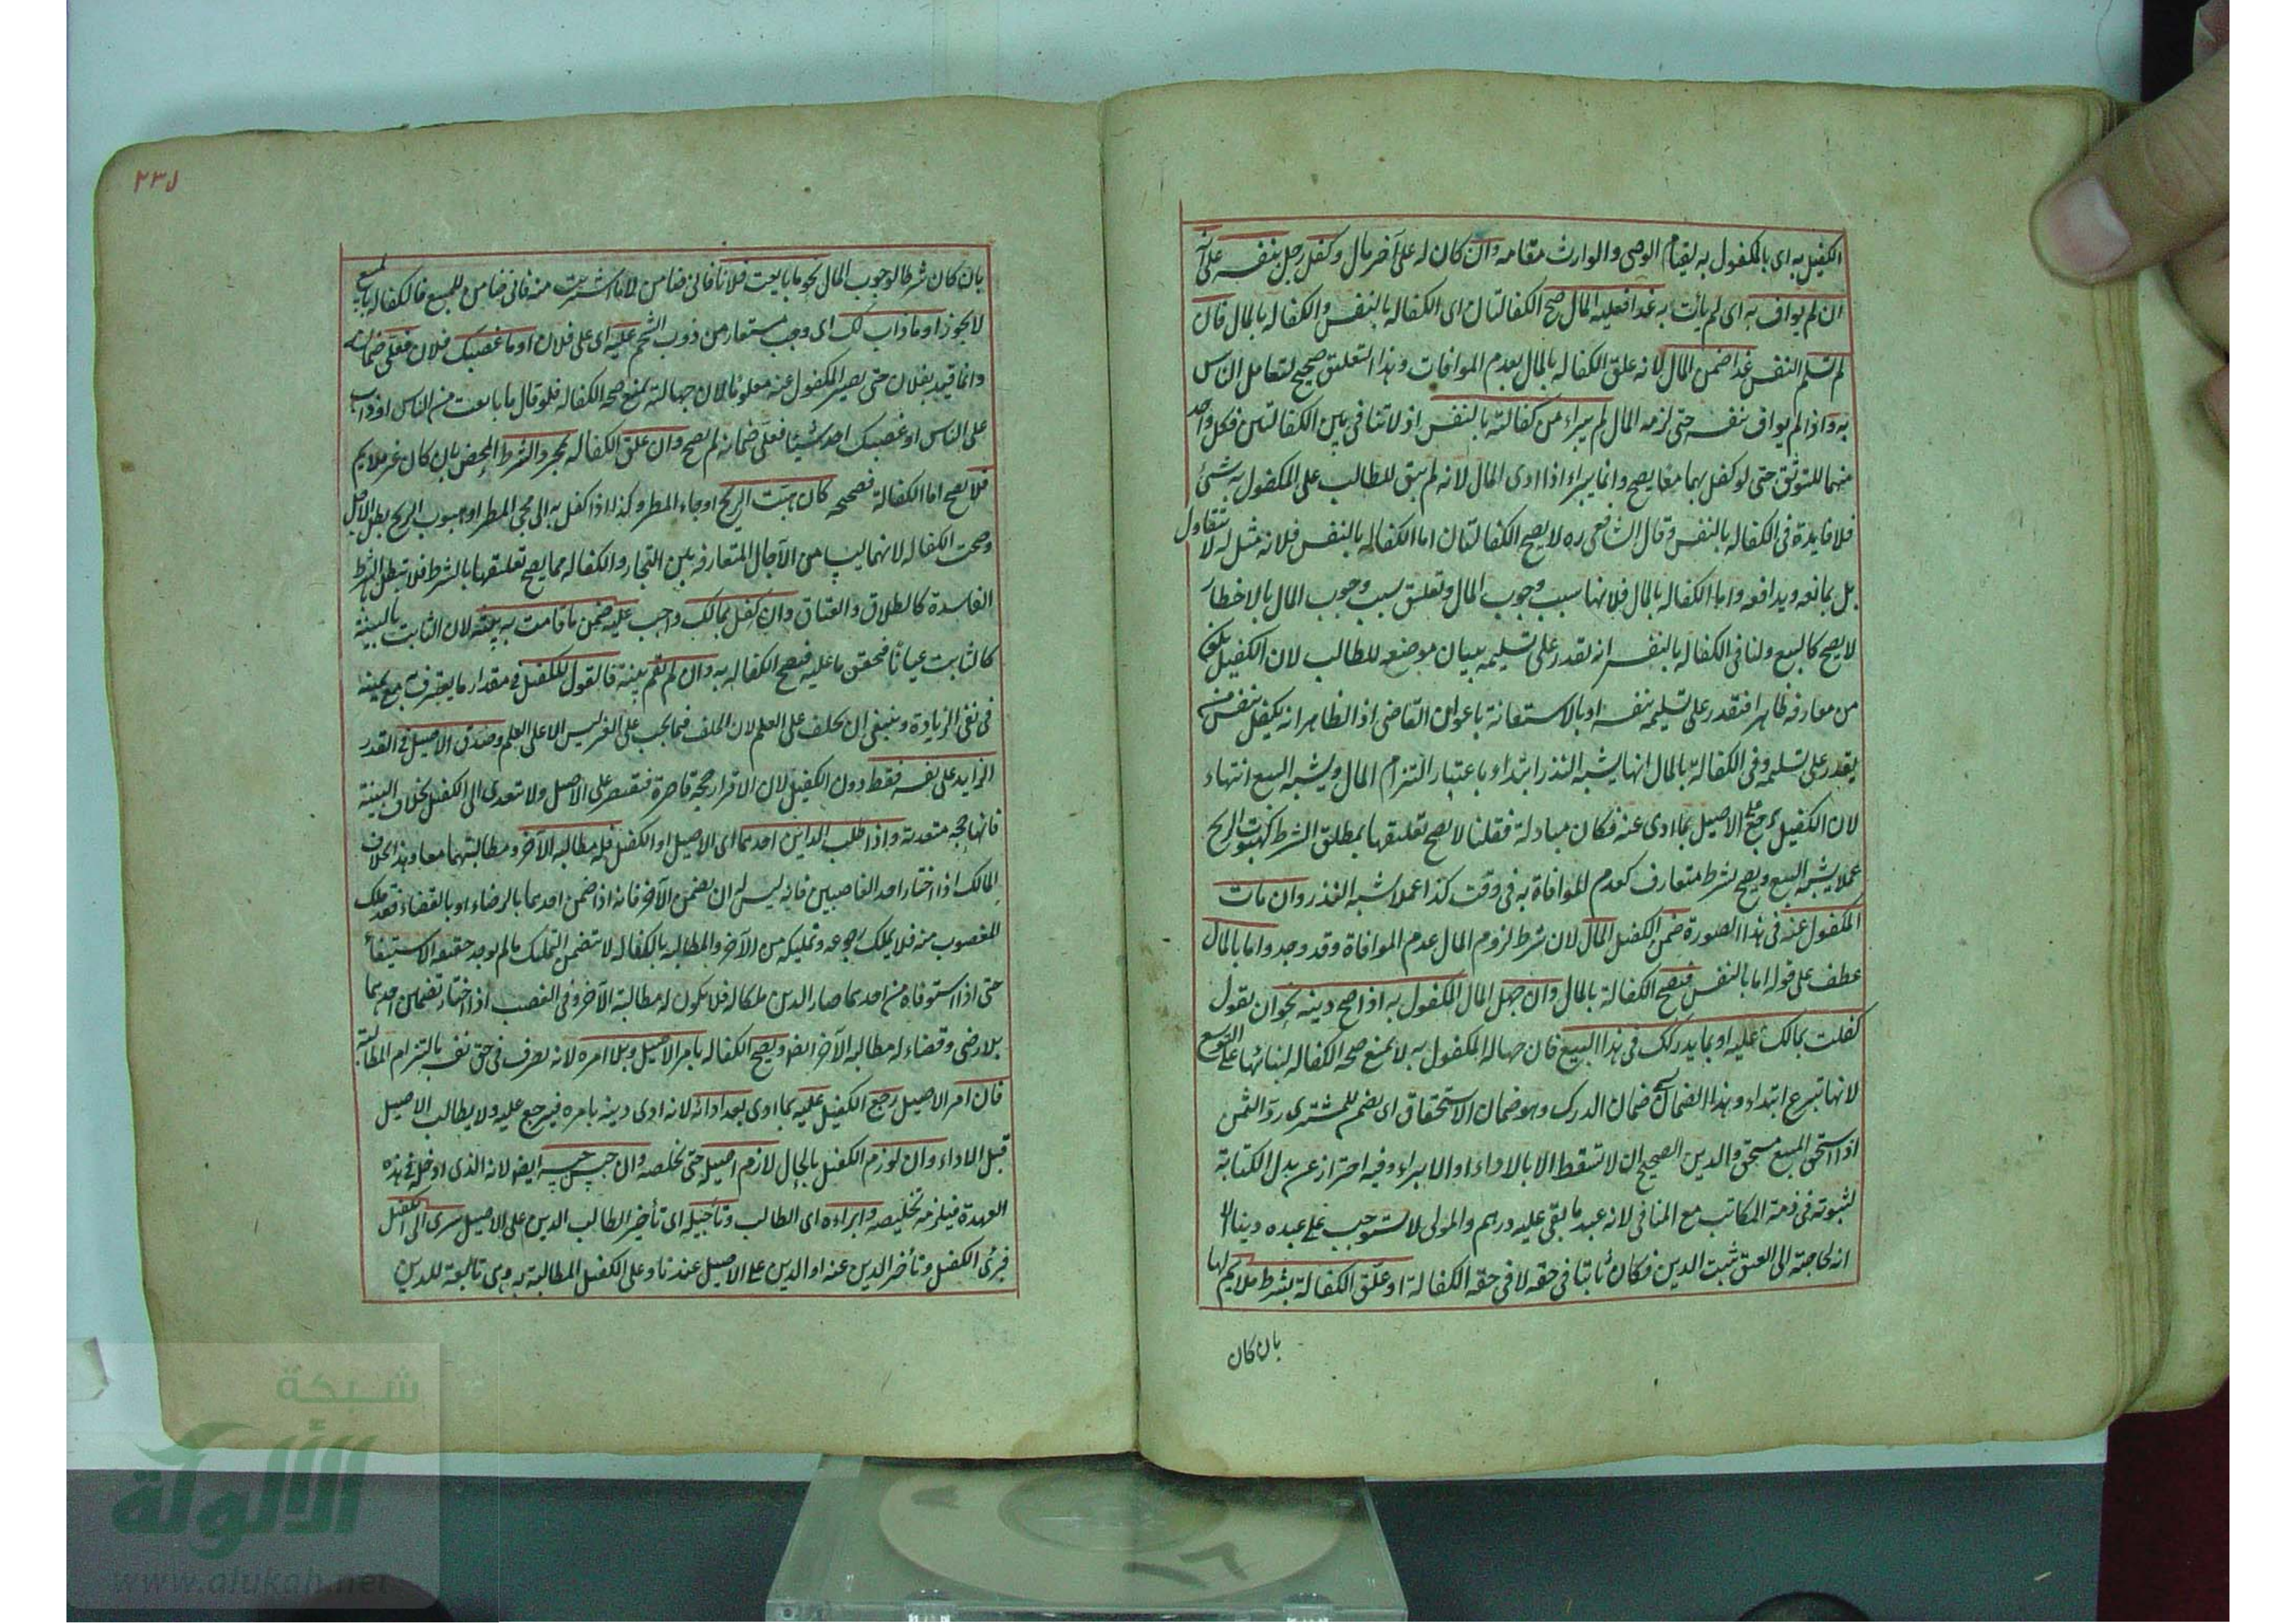 الكفيل به اى بالمكفول به لقيام الوصى والوارث مقامه وان كان له على آخر مال وكفل رجل بنفسه على انه
ان لم يواف به اى لم يأت به غدا فعليه المال صح الكفالتان اى الكفاله بالنفس والكفاله بالمال فان
لم تسلم النفس غدا ضمن المال لانه علق الكفاله بالمال بعدم الموافات وهذا التعليق صحيح لتعامل الناس
به واذا لم يواف بنفسه حتى لزمه المال لم يبراء من كفالته بالنفس اذ لا تنافى بين الكفالتين فكل واحد
منهما للتوثق حتى لو كفل بهما معا يصح وانما يبراء اذا ادى المال لانه لم يبق للطالب على المكفول به شئ
فلا فايدة فى الكفاله بالنفس وقال الشافعى ره لا يصح الكفالتان اما الكفاله بالنفس فلانه مثله لا ينقاد له
بل يمانعه ويدافعه واما الكفاله بالمال فلانها سبب وجوب المال وتعليق سبب وجوب المال بالاخطار
لا يصح كالبيع ولنا فى الكفاله بالنفس انه يقدر على تسليمه ببيان موضعه للطالب لان الكفيل يكون
من معارفه ظاهرا فيقدر على تسليمه بنفسه او بالاستعانة باعوان القاضى اذ الظاهر انه يكفل بنفس من
يقدر على تسليمه وفى الكفالة بالمال انها يشبه النذر ابتداء باعتبار التزام المال ويشبه البيع انتهاء
لان الكفيل يرجع على الاصيل بما ادى عنه فكان مبادلة فقلنا لا يصح تعليقها بمطلق الشرط كهبوب الريح
عملا بشبه البيع ويصح بشرط متعارف كعدم الموافاة به فى وقت كذا عملا بشبه النذر وان مات
المكفول عنه فى هذا الصورة ضمن الكفيل المال لان شرط لزوم المال عدم الموافاة وقد وجد واما بالمال
عطف على قوله اما بالنفس فيصح الكفالة بالمال وان جهل المال المكفول به اذا صح دينه نحو ان يقول
كفلت بمالك عليه او بما يدركك فى هذا البيع فان جهالة المكفول به لا يمنع صحة الكفاله لبنائها على التوسع
لانها تبرع ابتداء وهذا الضمان يسمى ضمان الدرك وهو ضمان الاستحقاق اى يضم للمشترى رد الثمن
اذا استحق المبيع مستحق والدين الصحيح ان لا تسقط الا بالاداء او الابراء وفيه احتراز عن بدل الكتابة
لثبوته فى ذمة المكاتب مع المنافى لانه عبد ما بقى عليه درهم والمولى لا يستوجب على عبده دينا الا
انه لحاجته الى العتق ثبت الدين فكان ثابتا فى حقه لا فى حقه الكفالة او علق الكفالة بشرط ملايم لها
بان كان
٢٣١
بان كان شرطا لوجوب المال نحو ما بايعت فلانا فانى ضامن لا ما اشتريت منه فانى ضامن للمبيع فالكفاله بالمبيع
لا يجوز او ما ذاب لك اى وجب مستعار من ذوب الشحم عليه اى على فلان او ما غصبك فلان فعلى ضمانه
وانما قيد بفلان حتى يصير المكفول عنه معلوما لان جهالته يمنع صحه الكفاله فلو قال ما بايعت من الناس او ذاب
على الناس او غصبك احد شيئا فعلى ضمانه لم يصح وان علق الكفاله بمجرد الشرط المحض بان كان غير ملايم
فلا يصح اما الكفالة فصحيحه كان هبت الريح او جاء المطر وكذا اذا كفل به الى مجى المطر او هبوب الريح بطل الاجل
وصحت الكفاله لانهما ليسا من الآجال المتعارفه بين التجار والكفاله مما يصح تعليقها بالشرط فلا تبطل بالشرط
الفاسدة كالطلاق والعتاق وان كفل بمالك واجب عليه ضمن ما قامت به بينته لان الثابت بالبينة
كالثابت عيانا فتحقق ما عليه فيصح الكفاله به وان لم تقم بينة فالقول للكفيل فى مقدار ما يعترف به مع يمينه
فى نفى الزيادة وينبغى ان يحلف على العلم لان الحلف فيما يجب على الغير ليس الا على العلم وصدق الاصيل فى القدر
الزايد على نفسه فقط دون الكفيل لان الاقرار حجة قاصرة فيقتصر على الاصيل ولا تتعدى الى الكفيل بخلاف البينة
فانها حجه متعدية واذا طلب الداين احدهما اى الاصيل او الكفيل فله مطالبه الآخر ومطالبتهما معا وهذا بخلاف
المالك اذا اختار احد الغاصبين فانه ليس له ان يضمن الآخر فانه اذا ضمن احدهما بالرضاء او بالقضاء فقد ملك
المغصوب منه فلا يملك رجوعه وتمليكه من الآخر والمطالبه بالكفاله لا تتضمن التمليك ما لم يوجد حقيقه الاستيفأ
حتى اذا استوفاه من احدهما صار الدين ملكا له فلا يكون له مطالبة الآخر وفى الغصب اذا اختار تضمين احدهما
بلا رضى وقضاء له مطالبه الآخر ايضا ويصح الكفاله بامر الاصيل وبلا امره لانه تصرف فى حق نفسه بالتزام المطالبة
فان امر الاصيل رجع الكفيل عليه بما ادى بعد ادائه لانه ادى دينه بامره فيرجع عليه ولا يطالب الاصيل
قبل الاداء وان لوزم الكفيل بالمال لازم اصيله حتى يخلصه وان حبس حبسه ايضا لانه الذى ادخله فى هذه
العهدة فيلزمه تخليصه وابراءه اى الطالب وتأجيله اى تأخير الطالب الدين على الاصيل سرى الى الكفيل
فبرئ الكفيل وتأخر الدين عنه او الدين على الاصيل عندنا وعلى الكفيل المطالبة به وهى تابعة للدين
شبكة
الألوكة
www.alukah.net